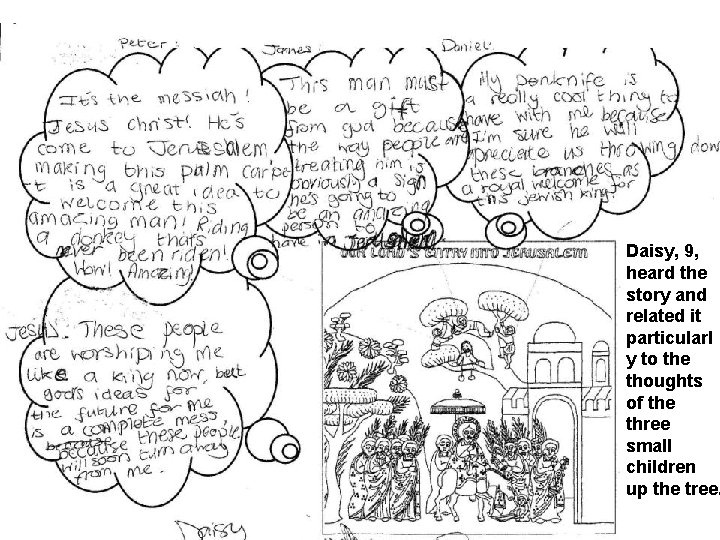 Peter:
It's the messiah!
Jesus christ! He's
come to Jerusalem
making this palm carpet
it is a great idea to
welcome this
amazing man! Riding
a donkey thats
never been riden!
Wow! Amazing!
James:
This man must
be a gift
from god because
the way people are
treating him is
obviously a sign
he's going to
be an amazing
person to
have in Jerusalem
Daniel:
My penknife is
a really cool thing to
have with me because
I'm sure he will
apreciate us throwing down
these branches as
a royal welcome for
this jewish king
Jesus. These people
are worshiping me
like a king now, but
god's ideas for
the future for me
is a complete mess,
because these people
will soon turn away
from me.
Daisy
OUR LORD'S ENTRY INTO JERUSALEM
Daisy, 9,
heard the
story and
related it
particularl
y to the
thoughts
of the
three
small
children
up the tree.